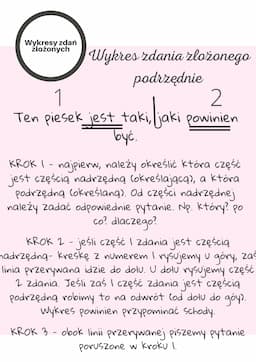 Wykresy zdań
złożonych
Wykres zdania złożonego
podrzędnie
1 2
Ten piesek jest taki, jaki powinien
być.
KROK 1 - najpierw, należy określić która część
jest częścią nadrzędną (określającą), a która
podrzędną (określaną). Od części nadrzędnej
należy zadać odpowiednie pytanie. Np. który? po
co? dlaczego?
KROK 2 - jeśli część 1 zdania jest częścią
nadrzędną- kreskę z numerem 1 rysujemy u góry, zaś
linia przerywana idzie do dołu. U dołu rysujemy część
2 zdania. Jeśli zaś 1 część zdania jest częścią
podrzędną robimy to na odwrót (od dołu do góry).
Wykres powinien przypominać schody.
KROK 3 - obok linii przerywanej piszemy pytanie
poruszone w kroku 1.